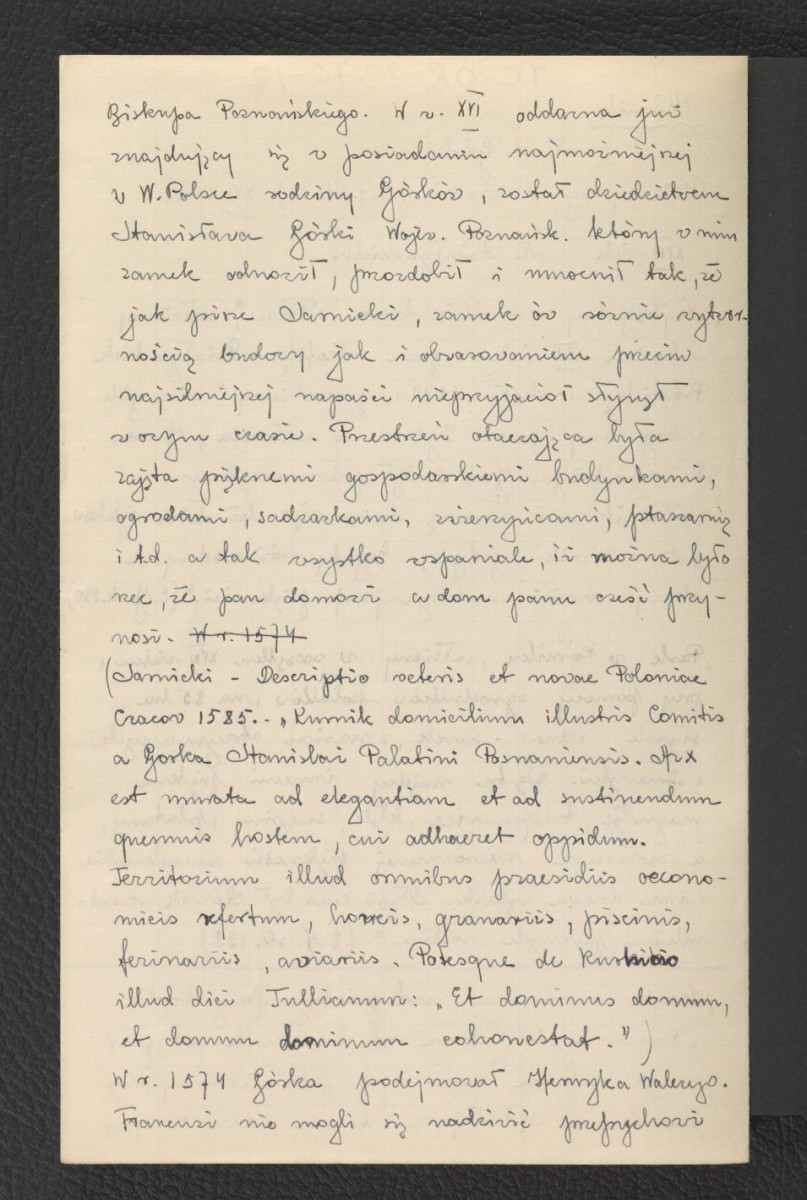 Biskupa Poznańskiego. W w. XVI oddawna już
znajdujący się w posiadaniu najmożniejszej
w W. Polsce rodziny Górków, został dziedzictwem
Stanisława Górki Wojew. Poznańsk. który w nim
zamek odnowił, przozdobił i umocnił tak, że
jak pisze Sarnicki, zamek ów równie wytwor-
nością budowy jak i obwarowaniem przeciw
najsilniejszej napaści nieprzyjaciół słynął
w owym czasie. Przestrzeń otaczająca była
zajęta pięknemi gospodarskiemi budynkami,
ogrodami, sadzawkami, zwierzyńcami, ptaszarnią
i t.d. a tak wszystko wspaniale, iż można było
rzec, że pan domowi a dom panu cześć przy-
nosi. W r. 1574
(Sarnicki - Descriptio veteris et novae Poloniae
Cracov 1585. - „Kurnik domicilium illustris Comitis
a Gorka Stanislai Palatini Posnaniensis. Arx
est murata ad elegantiam et ad sustinendum
quemvis hostem, cui adhaeret oppidum.
Territorium illud omnibus praesidiis oecono-
micis refertum, horreis, granariis, piscinis,
ferinariis, aviariis. Potesque de
illud dici Tullianum: „Et dominus domum,
et domum dominum cohonestat.")
W r. 1574 Górka podejmował Henryka Walezyo.
Francuzi nie mogli się nadziwić przepychowi